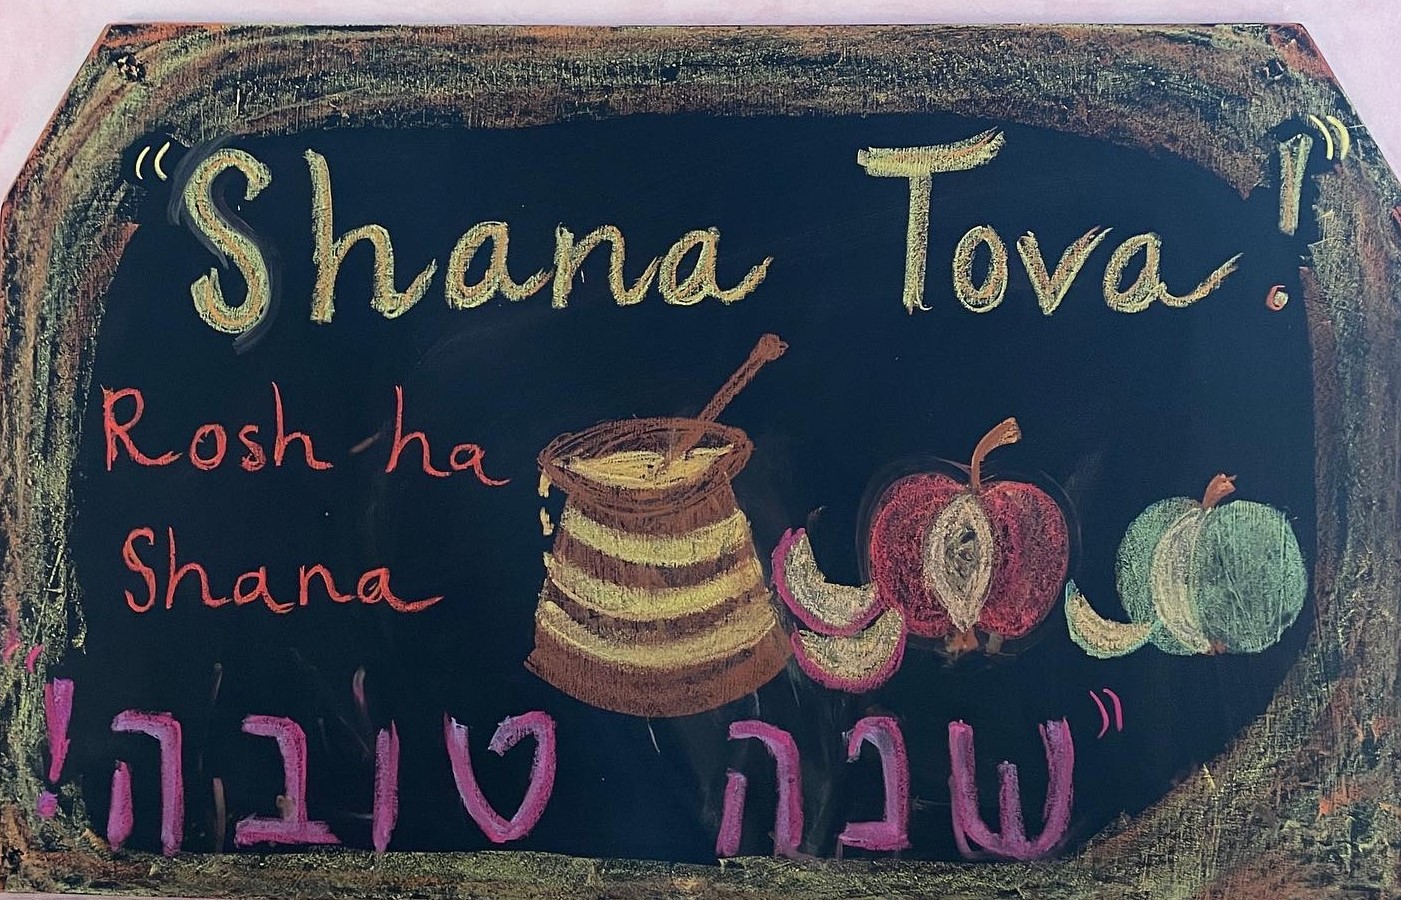 "Shana Tova!"
Rosh ha
Shana
"שנה טובה!"